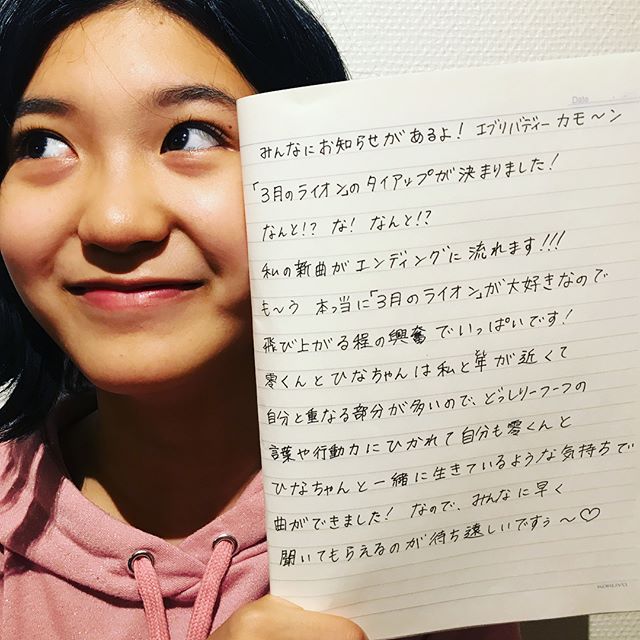 Date
みんなにお知らせがあるよ! エブリバディー カモ〜ン
「3月のライオン」のタイアップが決まりました!
なんと!? な! なんと!?
私の新曲がエンディングに流れます!!!
も〜う 本っ当に「3月のライオン」が大好きなので
飛び上がる程の興奮でいっぱいです!
零くんとひなちゃんは私と年が近くて
自分と重なる部分が多いので、どっしり一つ一つの
言葉や行動力にひかれて自分も零くんと
ひなちゃんと一緒に生きているような気持ちで
曲ができました! なので、みんなに早く
聞いてもらえるのが待ち遠しいですぅ〜♡
KOKUYO